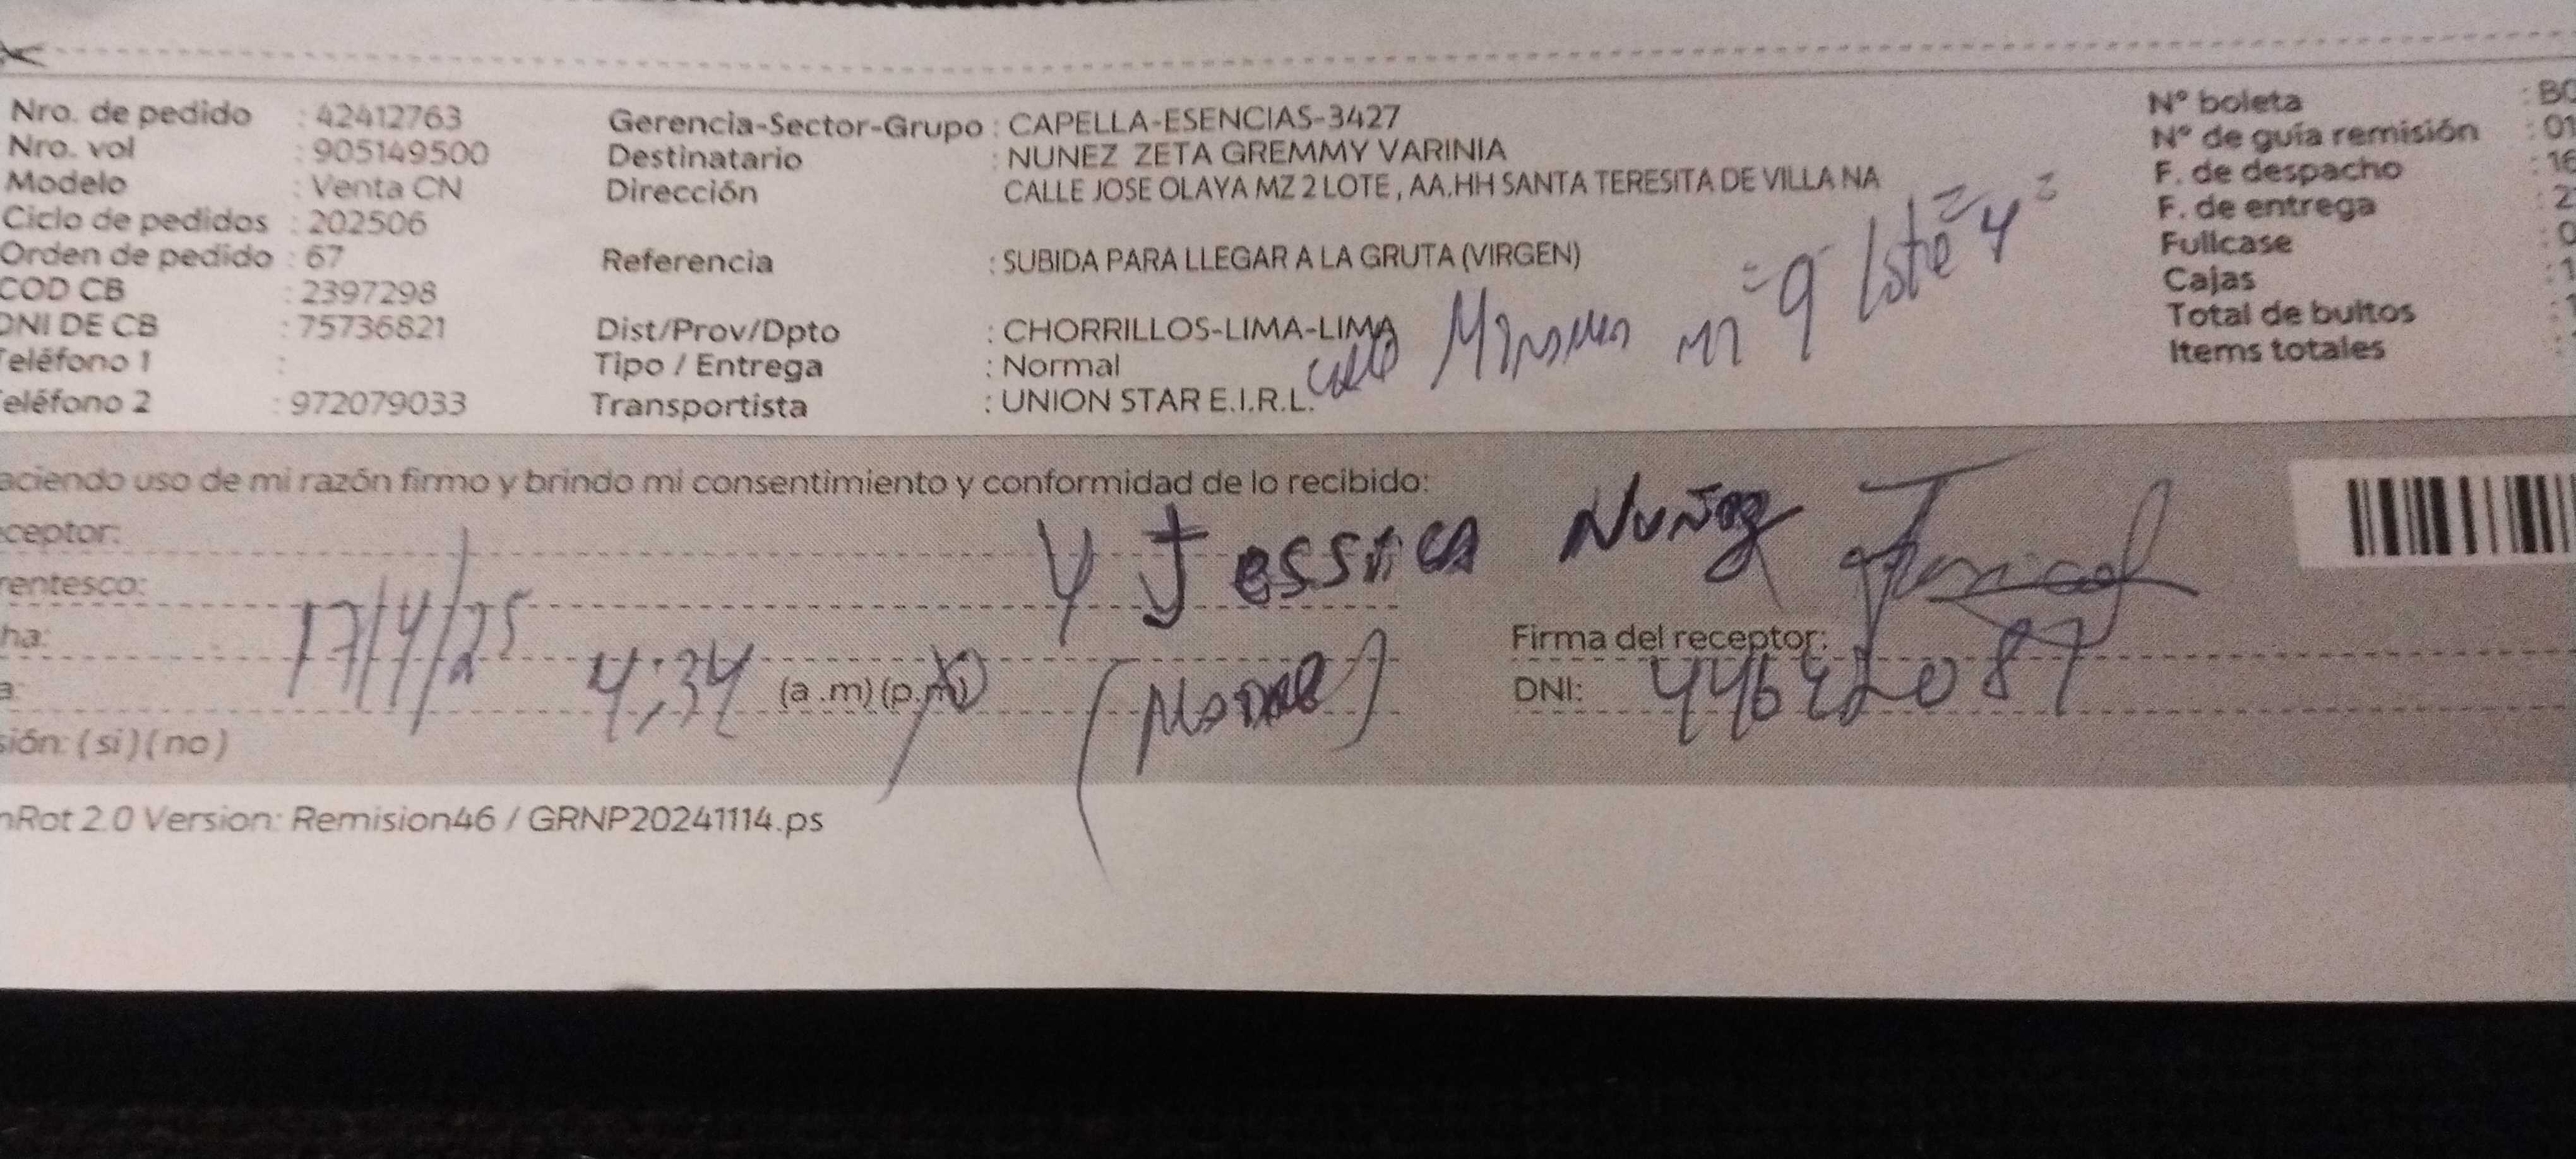 Nro. de pedido : 42412763
Nro. vol : 905149500
Modelo : Venta CN
Ciclo de pedidos : 202506
Orden de pedido : 67
COD CB : 2397298
DNI DE CB : 75736821
Teléfono 1 :
Teléfono 2 : 972079033
Gerencia-Sector-Grupo : CAPELLA-ESENCIAS-3427
Destinatario : NUNEZ ZETA GREMMY VARINIA
Dirección CALLE JOSE OLAYA MZ 2 LOTE , AA.HH SANTA TERESITA DE VILLA NA
Referencia : SUBIDA PARA LLEGAR A LA GRUTA (VIRGEN)
Dist/Prov/Dpto : CHORRILLOS-LIMA-LIMA
Tipo / Entrega : Normal
Transportista : UNION STAR E.I.R.L.
calle mz 9 lote 4
N° boleta : BO
N° de guía remisión : 01
F. de despacho : 16
F. de entrega : 2
Fullcase : 0
Cajas : 1
Total de bultos :
Items totales :
aciendo uso de mi razón firmo y brindo mi consentimiento y conformidad de lo recibido:
ceptor: Jessica Nuñez
rentesco:
ha: 17/4/25
a: 4:34 (a .m) (p.m)
sión: ( si ) ( no )
Firma del receptor:
DNI: 44642087
nRot 2.0 Version: Remision46 / GRNP20241114.ps